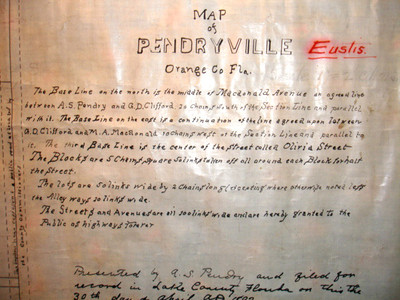 MAP
of
PENDRYVILLE
Eustis.
Orange Co Fla.
The Base Line on the north is the middle of Macdonald Avenue an agreed line
between A.S. Pendry & G.D. Clifford, 20 Chains South of the Section Line and parallel
with it. The Base Line on the east is a continuation of the line agreed upon between
G.D. Clifford and M.A. MacDonald 10 chains west of the Section Line and parallel to
it. The third Base Line is the center of the street called Olivia Street.
The Blocks are 5 Chains Square 50 links taken off all around each Block for half
the Street.
The lots are 50 links wide by 2 Chains long (excepting where otherwise noted)
the Alley ways 50 links wide.
The Streets and Avenues are all 100 links wide and are hereby granted to the
Public as highways forever
Presented by A.S. Pendry and filed for
record in Lake County Florida on this the
30th day of April A.D.